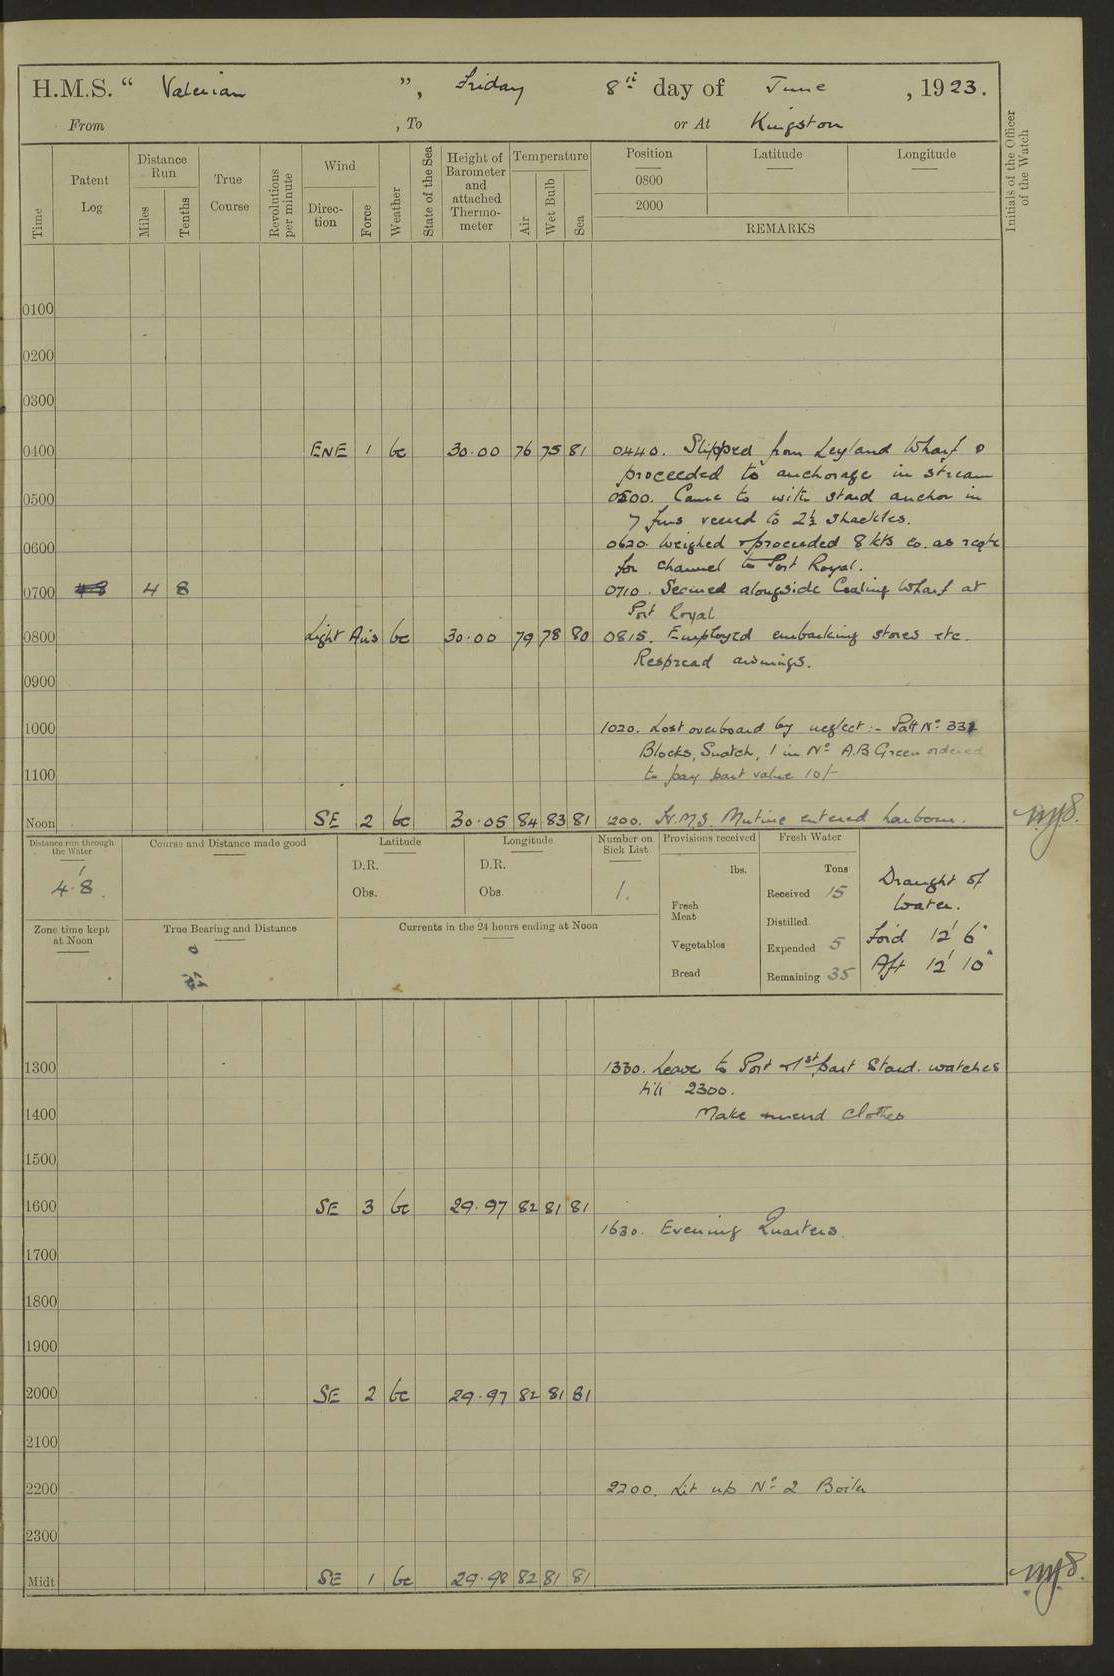 H.M.S. “ Valerian ”, Friday 8th day of June , 1923.
From , To or At Kingston
Time
Patent Log
Distance Run
Miles
Tenths
True Course
Revolutions per minute
Wind
Direction
Force
Weather
State of the Sea
Height of Barometer and attached Thermometer
Temperature
Air
Wet Bulb
Sea
Position
Latitude
Longitude
0800
2000
REMARKS
Initials of the Officer of the Watch
0100
0200
0300
0400 ENE 1 bc 30.00 76 75 81 0440. Slipped from Leyland Wharf &
proceeded to anchorage in stream
0500 0500. Came to with stard anchor in
7 fms veered to 2½ shackles.
0600 0620. Weighed & proceeded 8 kts Co. as reqte
for channel to Port Royal.
0700 4 8 0710. Secured alongside Coaling Wharf at
Port Royal
0800 Light Airs bc 30.00 79 78 80 0815. Employed embarking stores etc.
Respread awnings.
0900
1000 1020. Lost overboard by neglect :- Patt No. 331
Blocks, Snatch, 1 in No. A.B Green ordered
1100 to pay part value 10/-
Noon SE 2 bc 30.05 84 83 81 1200. H.M.S. Mutine entered harbour.
Distance run through the Water
4.8
Course and Distance made good
Latitude
D.R.
Obs.
Longitude
D.R.
Obs
Number on Sick List
1.
Provisions received
lbs.
Fresh Meat
Vegetables
Bread
Fresh Water
Tons
Received 15
Distilled
Expended 5
Remaining 35
Draught of
Water.
For'd 12' 6"
Aft 12' 10"
Zone time kept at Noon
True Bearing and Distance
Currents in the 24 hours ending at Noon
1300 1330. Leave to Port & 1st part Stard. watches
till 2300.
1400 Make & mend clothes
1500
1600 SE 3 bc 29.97 82 81 81
1630. Evening Quarters.
1700
1800
1900
2000 SE 2 bc 29.97 82 81 81
2100
2200 2200. Lit up No. 2 Boiler
2300
Midt SE 1 bc 29.98 82 81 81